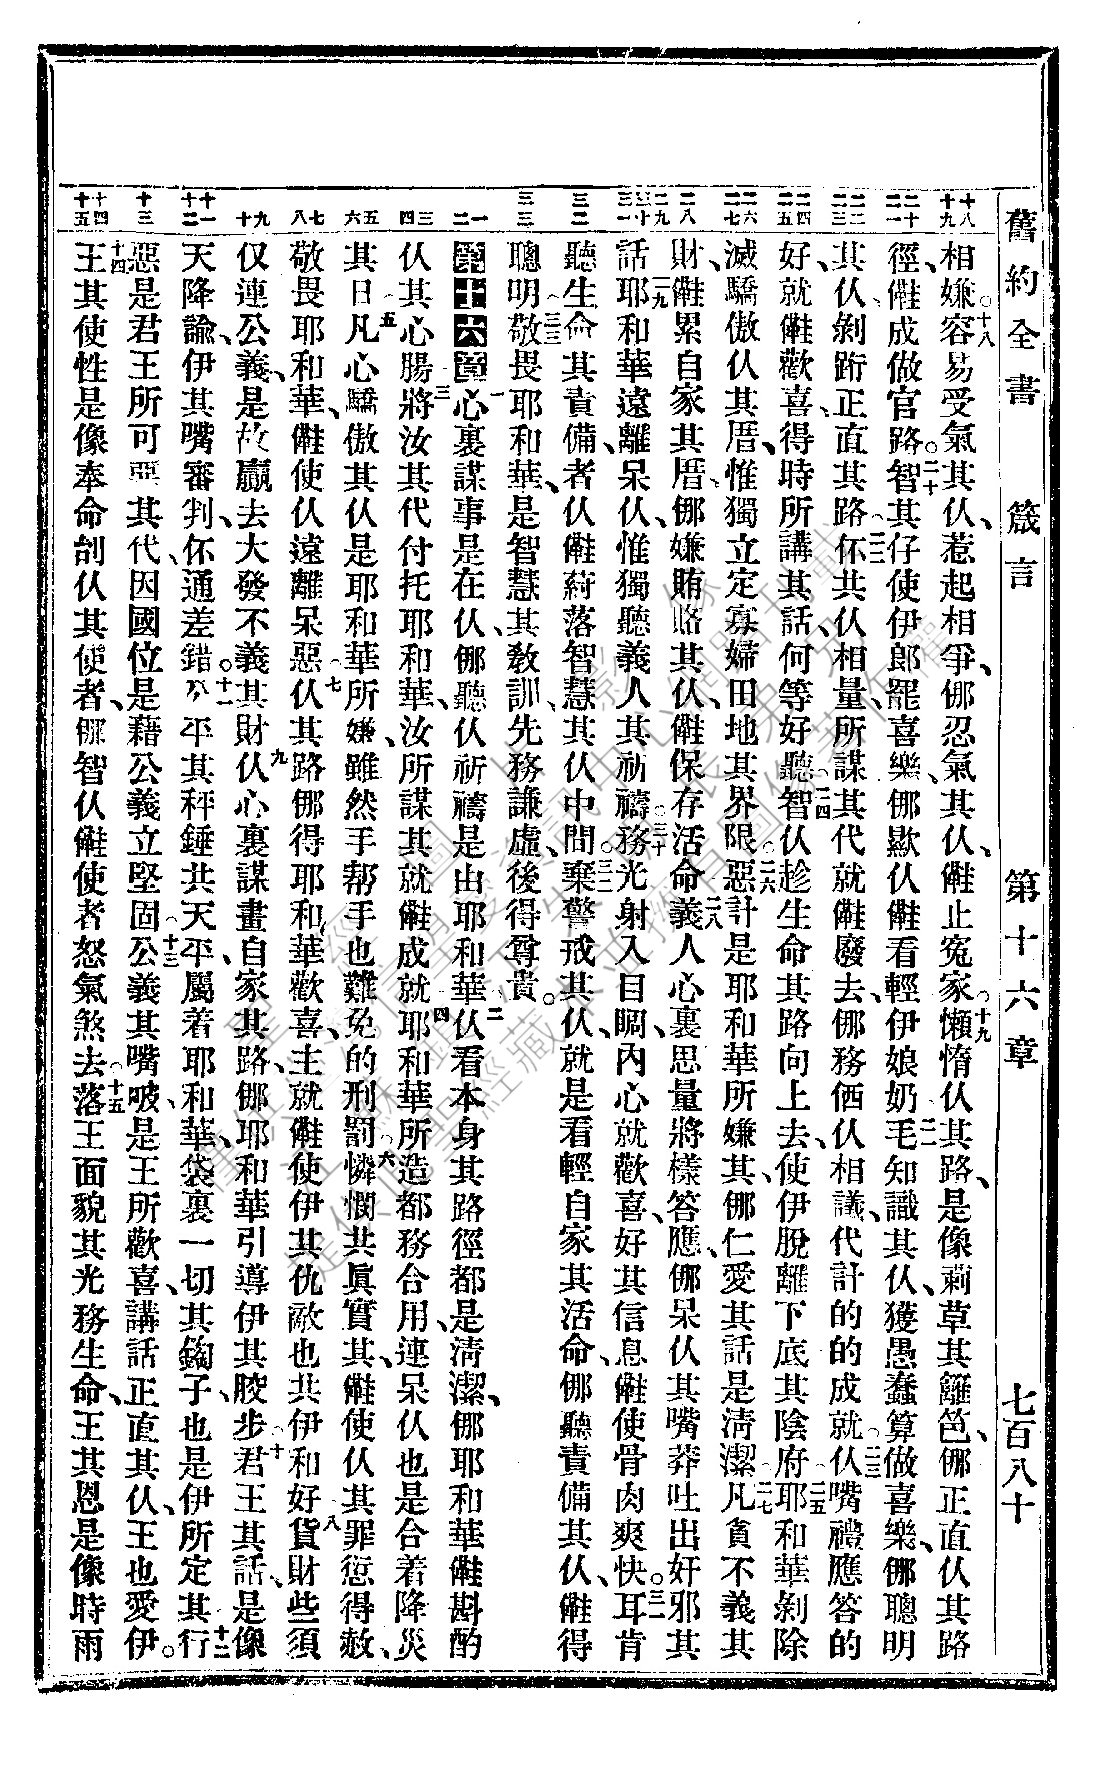 舊約全書　箴言　第十六章　七百八十
十八 十九 二十 二一 二二 二三 二四 二五 二六 二七 二八 二九 三十 三一 三二 三三 一 二 三 四 五 六 七 八 九 十 十一 十二 十三 十四 十五
相嫌容易受氣其仫、惹起相爭、𠲥忍氣其仫、𠆧止寃家。十九懶惰仫其路、是像莿草其籬笆、𠲥正直仫其路
徑、𠆧成做官路。二十智其仔使伊郎罷喜樂、𠲥歉仫𠆧看輕伊娘奶。二一毛知識其仫獲愚蠢算做喜樂、𠲥聰明
其仫剝䟓正直其路。二二伓共仫相量、所謀其代就𠆧廢去、𠲥務価仫相議、代計的的成就。二三仫嘴禮應答的
好、就𠆧歡喜、得時所講其話、何等好聽。二四智仫趁生命其路向上去、使伊脫離下底其陰府。二五耶和華剝除
滅驕傲仫其厝、惟獨立定寡婦田地其界限。二六惡計是耶和華所嫌其、𠲥仁愛其話是淸潔。二七凡貪不義其
財、𠆧累自家其厝、𠲥嫌賄賂其仫、𠆧保存活命。二八義人心裏思量將樣答應、𠲥呆仫其嘴莽吐出奸邪其
話。二九耶和華遠離呆仫、惟獨聽義人其祈禱。三十務光射入目瞯、內心就歡喜、好其信息、𠆧使骨肉爽快。三一耳肯
聽生命其責備者、仫𠆧䋀落智慧其仫中間。三二棄警戒其仫、就是看輕自家其活命、𠲥聽責備其仫、𠆧得
聰明。三三敬畏耶和華、是智慧其敎訓、先務謙虛、後得尊貴。
第十六章　一心裏謀事是在仫、𠲥聽仫祈禱是由耶和華。二仫看本身其路徑都是淸潔、𠲥耶和華𠆧斟酌
仫其心腸。三將汝其代付托耶和華、汝所謀其就𠆧成就。四耶和華所造都務合用、連呆仫也是合着降災
其日。五凡心驕傲其仫是耶和華所嫌、雖然手帮手也難免的刑罰。六憐憫共眞實其、𠆧使仫其罪愆得赦、
敬畏耶和華、𠆧使仫遠離呆惡。七仫其路𠲥得耶和華歡喜、主就𠆧使伊其仇敵也共伊和好。八貨財些須
仅連公義、是故贏去大發不義其財。九仫心裏謀畫自家其路、𠲥耶和華引導伊其跤步。十君王其話、是像
天降諭、伊其嘴審判、伓通差錯。十一公平其秤錘共天平、屬着耶和華、袋裏一切其鋾子也是伊所定其。十二行
惡是君王所可惡其代、因國位是藉公義立堅固。十三公義其嘴唇是王所歡喜、講話正直其仫、王也愛伊。
十四王其使性是像奉命刣仫其使者、𠲥智仫𠆧使者怒氣煞去落。十五王面貌其光務生命、王其恩是像時雨